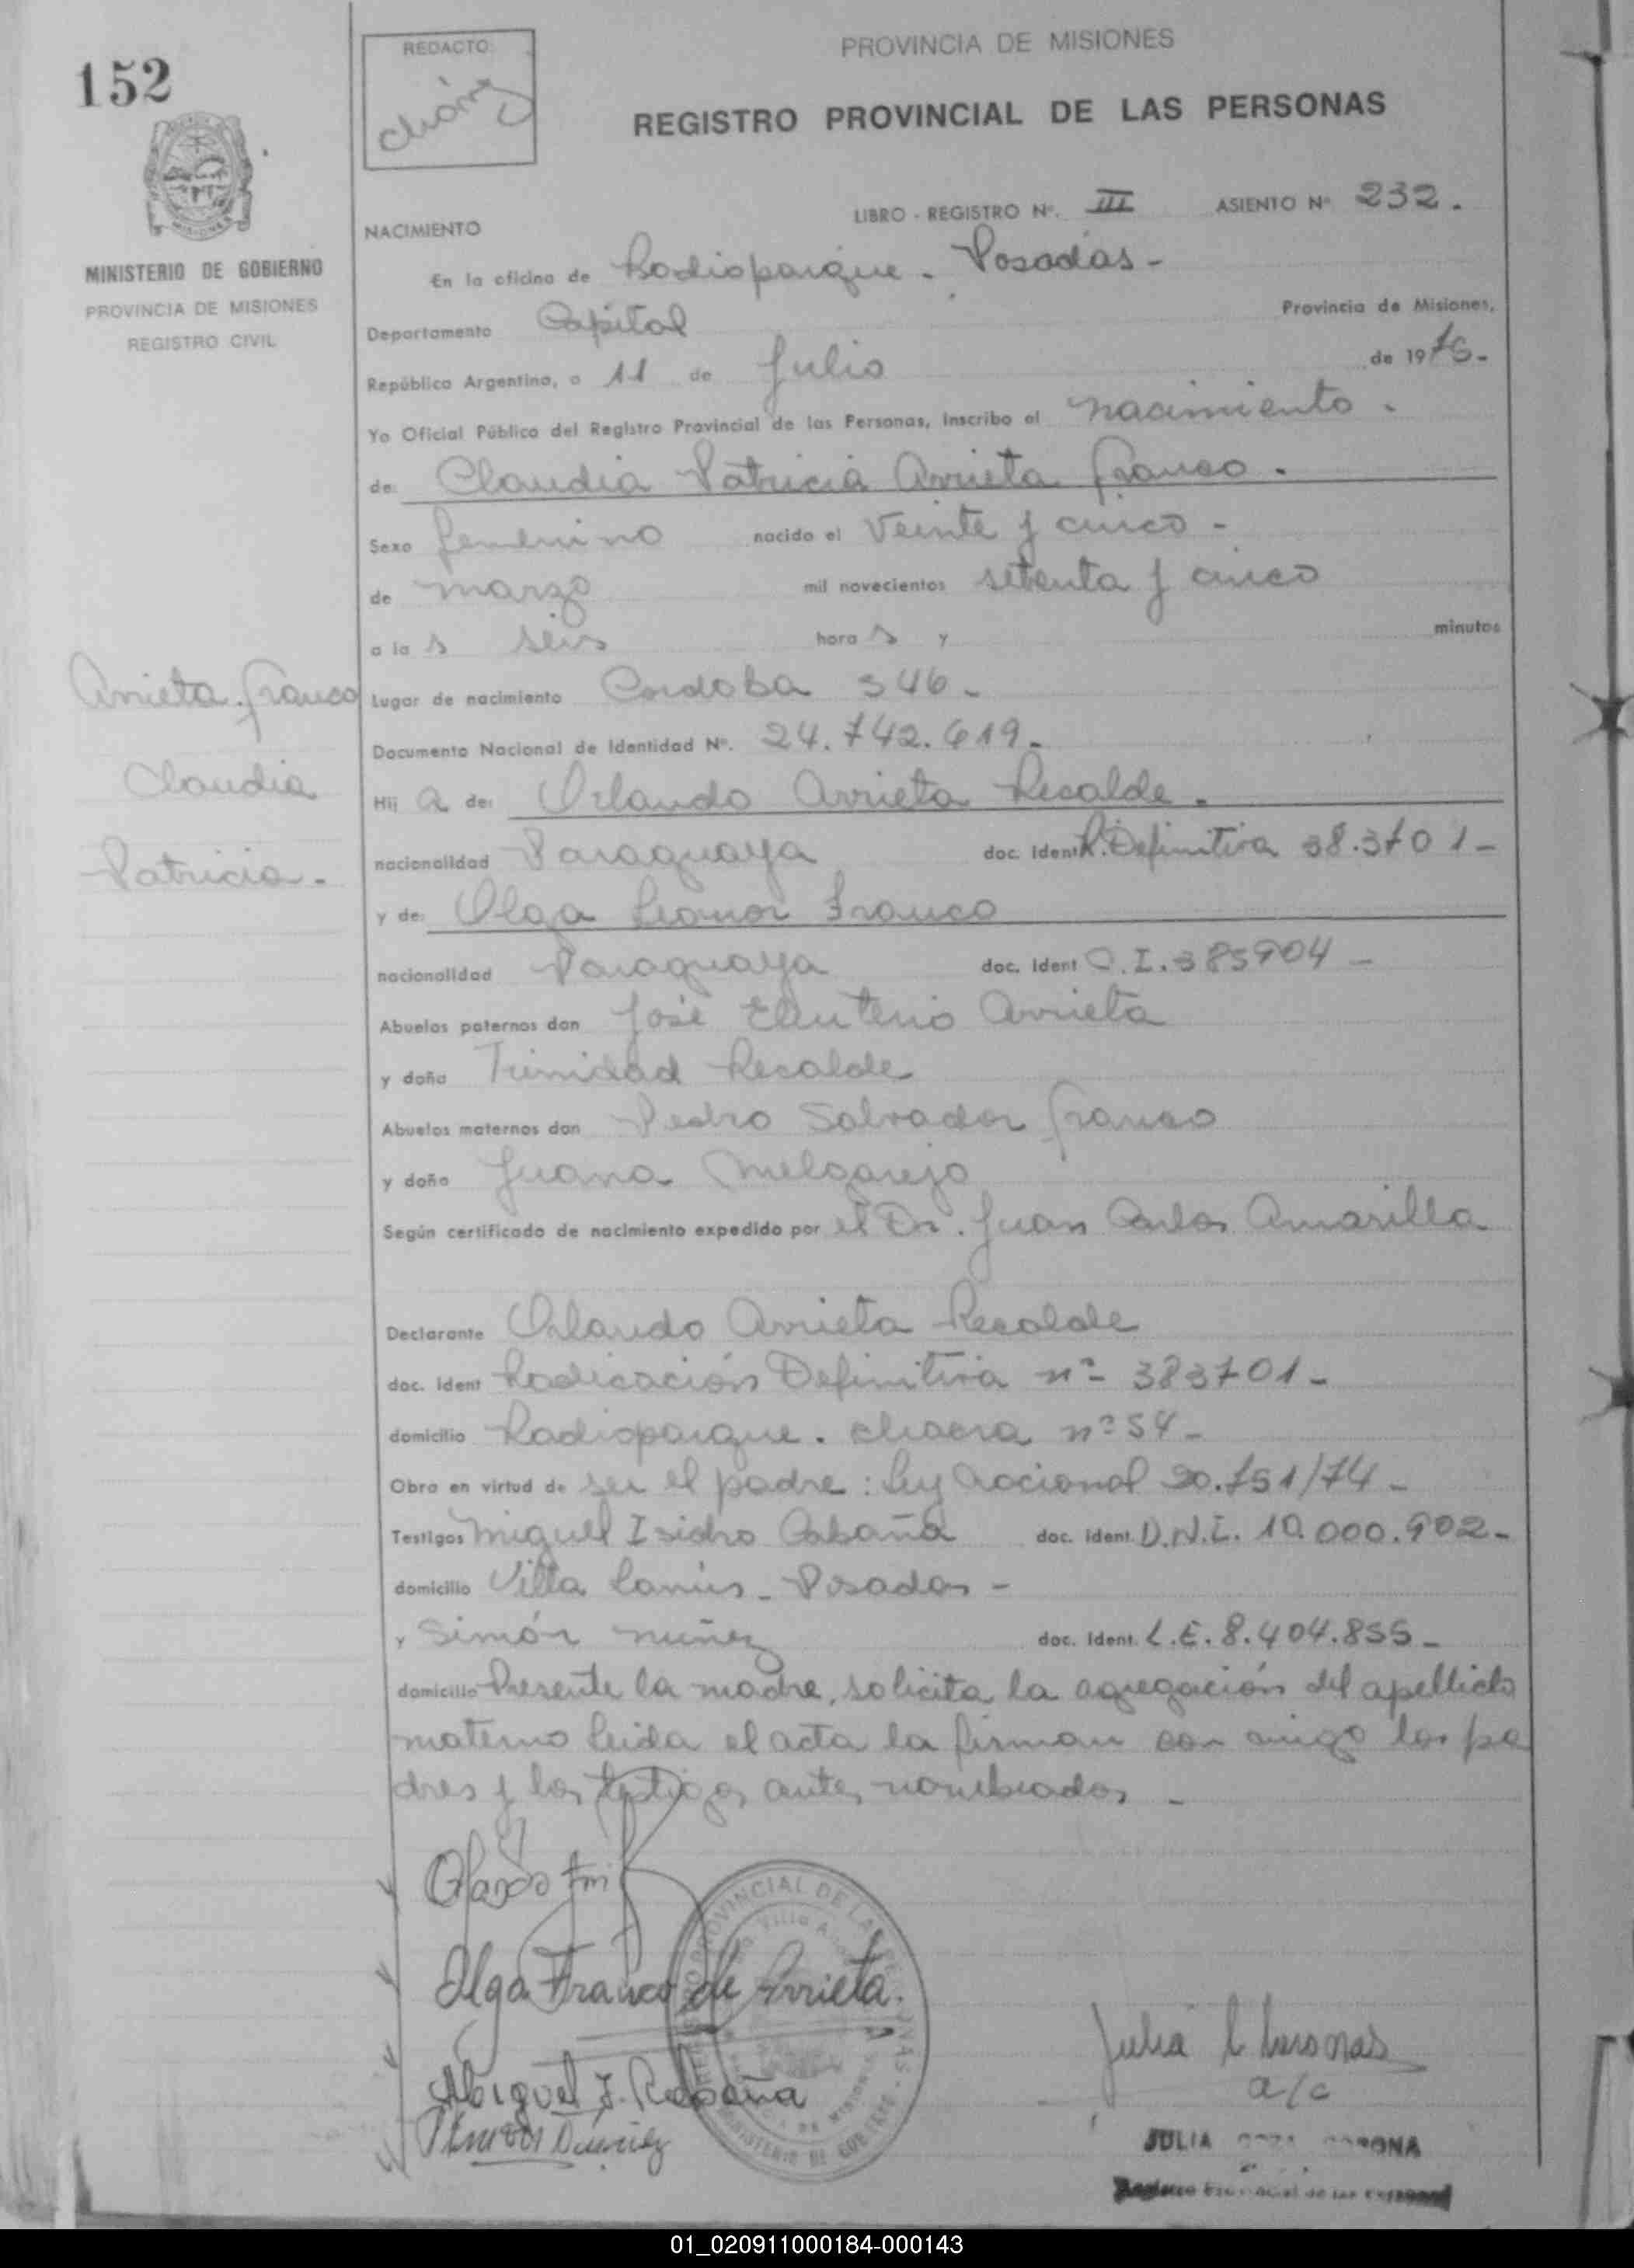 152
REDACTO:
PROVINCIA DE MISIONES
REGISTRO PROVINCIAL DE LAS PERSONAS
MINISTERIO DE GOBIERNO
PROVINCIA DE MISIONES
REGISTRO CIVIL
LIBRO - REGISTRO Nº. III ASIENTO Nº 232.
NACIMIENTO
En la oficina de Radioparque - Posadas -
Departamento Capital Provincia de Misiones,
República Argentina, a 11 de Julio de 1976-
Yo Oficial Público del Registro Provincial de las Personas, Inscribo el nacimiento.
de: Claudia Patricia Arrieta Franco.
Sexo femenino nacido el Veinte y cinco -
de marzo mil novecientos setenta y cinco
a la s seis hora s y minutos
Arrieta. Franco
Claudia
Patricia-
Lugar de nacimiento Cordoba 346-
Documento Nacional de Identidad Nº. 24.742.619-
Hij a de: Orlando Arrieta Recalde.
nacionalidad Paraguaya doc. Ident R. Definitiva 38.3701-
y de: Olga Leonor Franco
nacionalidad Paraguaya doc. Ident C.I. 385904 -
Abuelos paternos don José Eleuterio Arrieta
y doña Trinidad Recalde
Abuelos maternos don Pedro Salvador Franco
y doña Juana Melgarejo
Según certificado de nacimiento expedido por el Dr. Juan Carlos Amarilla
Declarante Orlando Arrieta Recalde
doc. Ident Radicación Definitiva nº 383701-
domicilio Radioparque. chacra nº 54-
Obra en virtud de ser el padre: Ley Nacional 20.751/74-
Testigos Miguel Isidro Cabaña doc. Ident. D.N.I. 10.000.902-
domicilio Villa Lanús - Posadas -
y Simón Nuñez doc. Ident. L.E. 8.404.855-
domicilio Presente la madre, solicita la agregación del apellido
materno leida el acta la firman con migo los pa
dres y los testigos antes nombrados -
Olga Franco de Arrieta.
Miguel I. Cabaña
Julia
a/c
JULIA
01_020911000184-000143